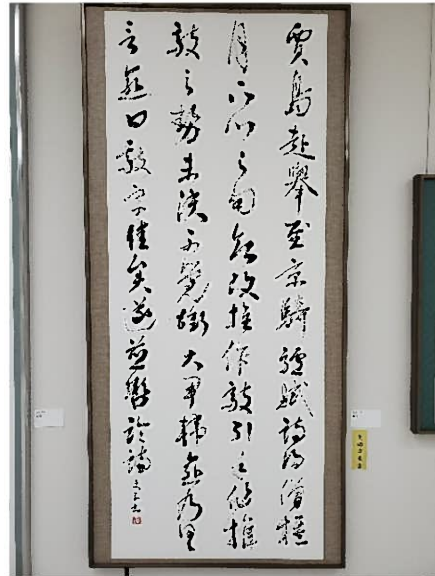 賈島赴舉至京騎驢賦詩得僧推
月下門之句欲改推作敲引手作推
敲之勢未決不覺衝大尹韓愈乃具
言愈曰敲字佳矣遂並轡論詩